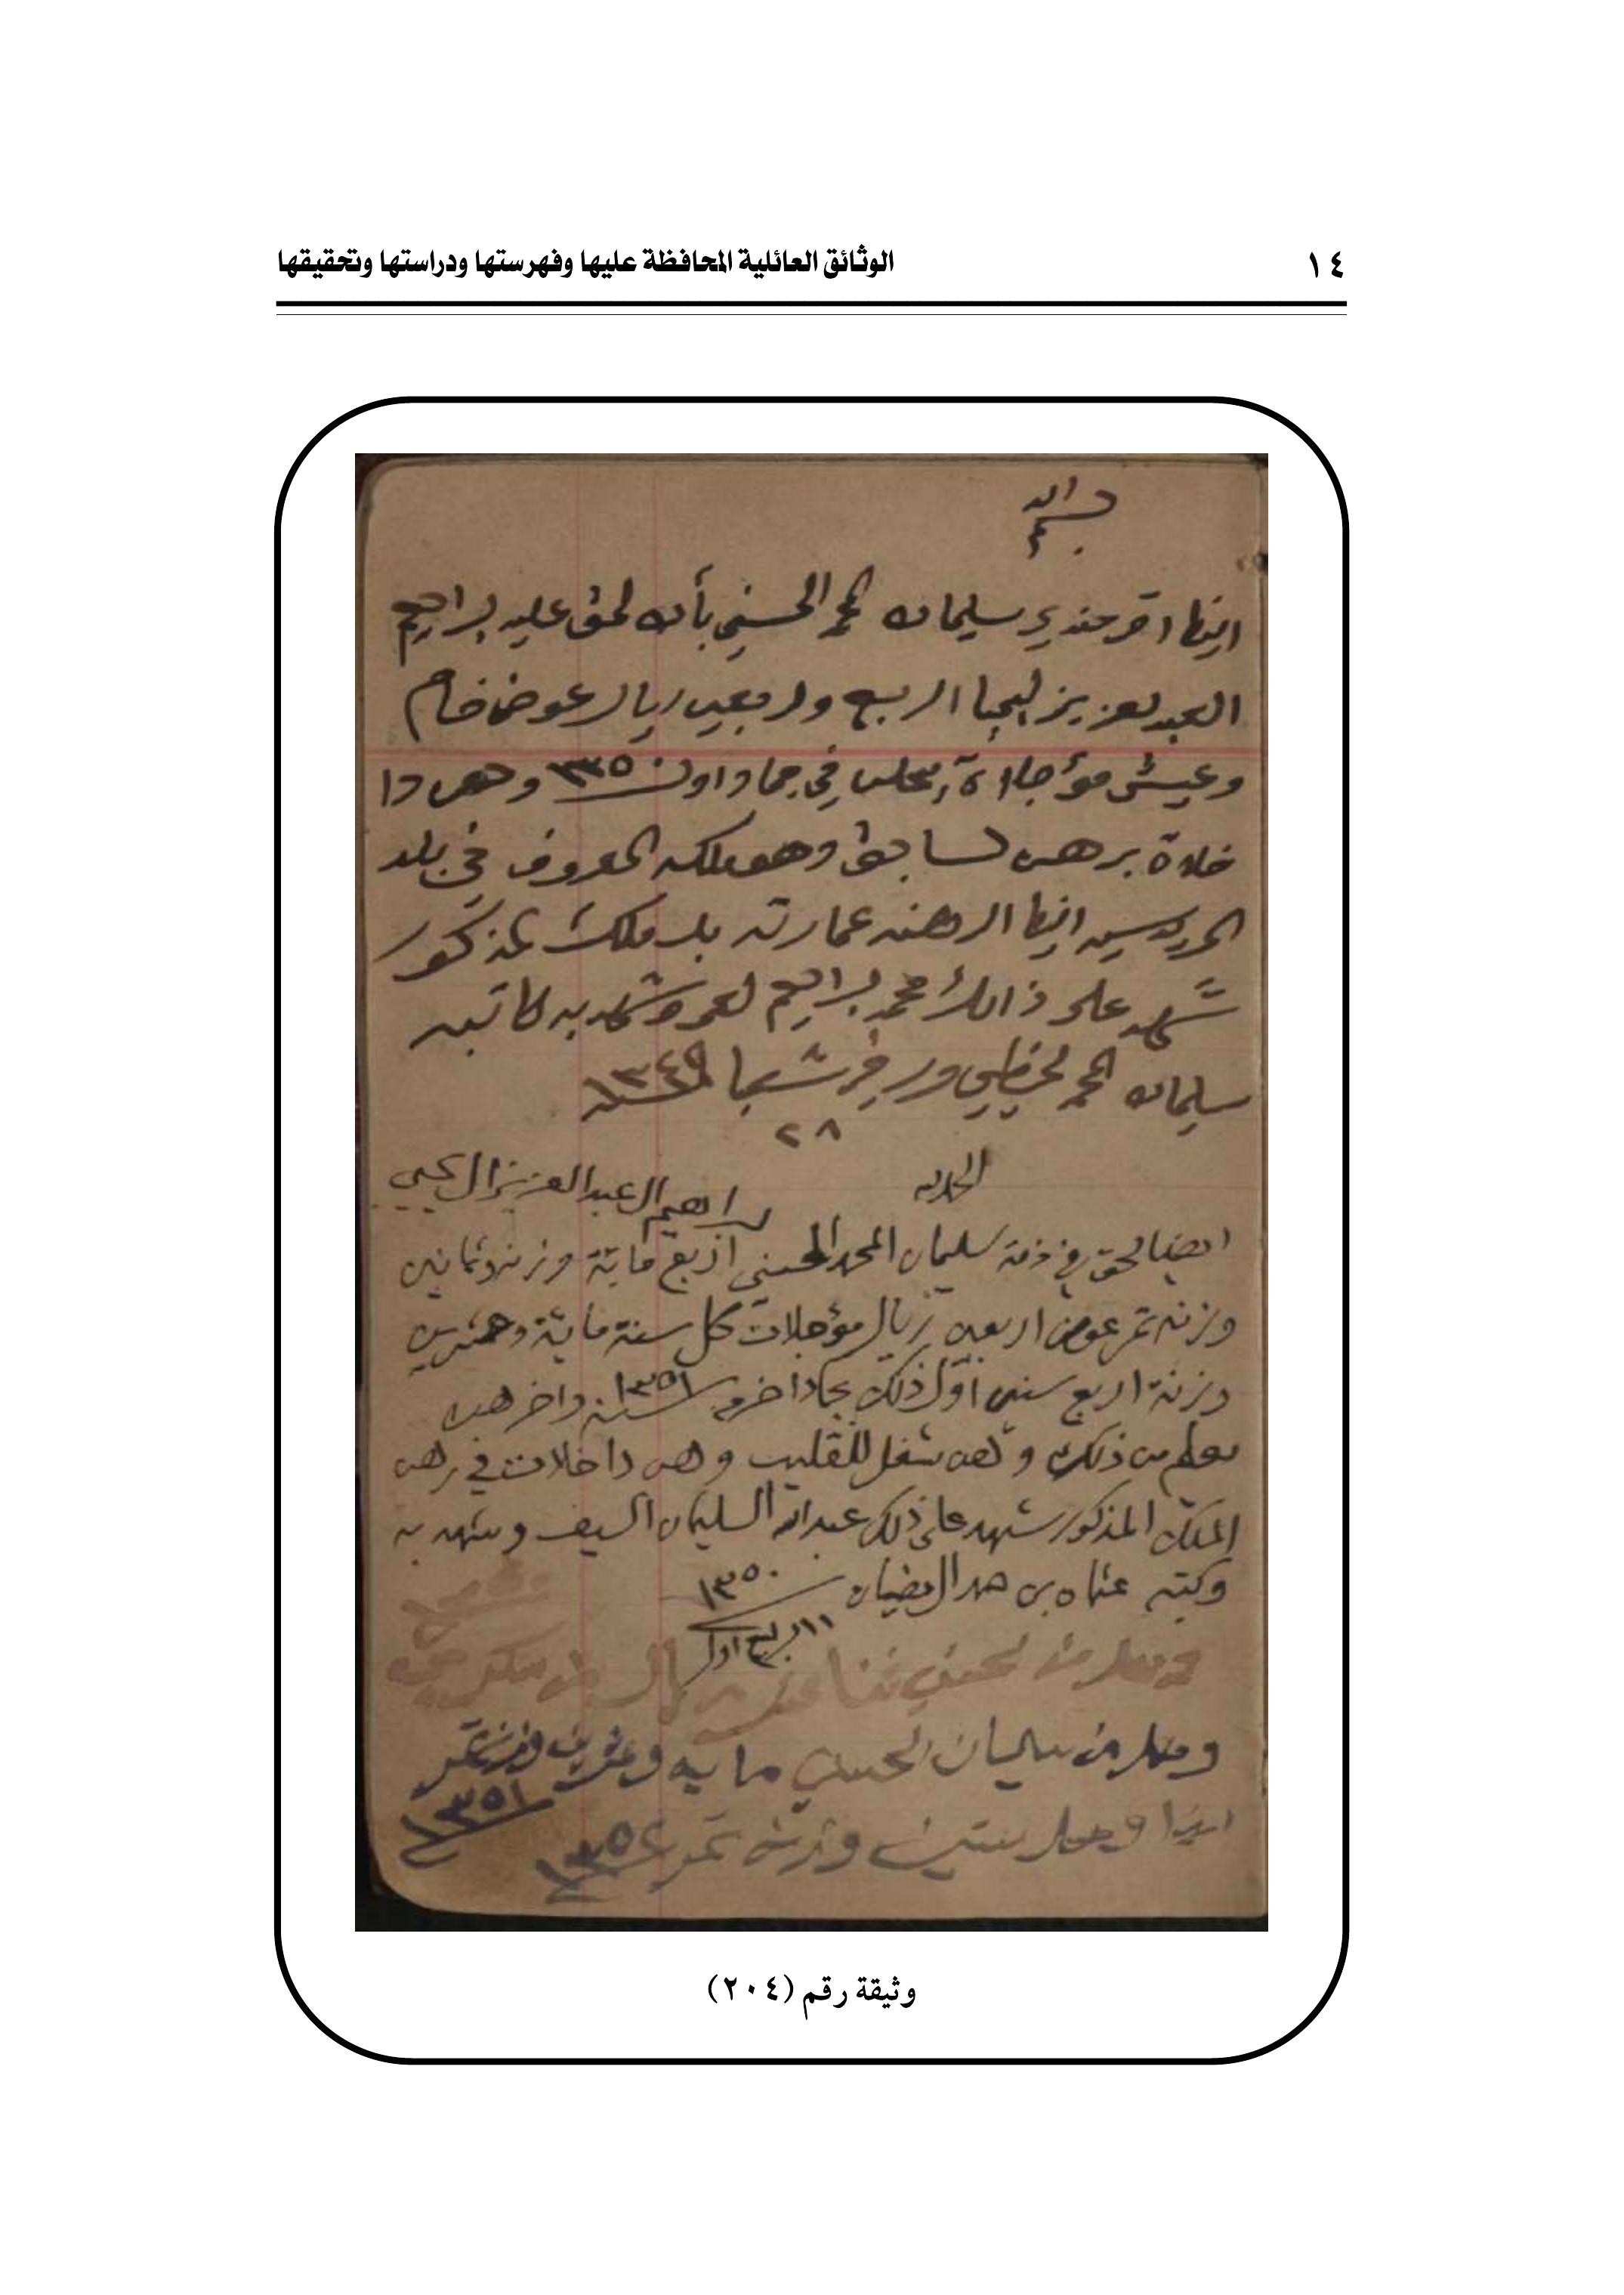 الوثائق العائلية المحافظة عليها وفهرستها ودراستها وتحقيقها
١٤
بسم الله
ايضا اقر عندي سليمان المحمد الحسني بأن لحق عليه لبراهيم
العبدلعزيز ليحيا اربع واربعين ريال عوض خام
وعيش مؤجلاة يحلن في جماد اول سنة ١٣٥٠ وهن دا
خلاة برهن لسابق وهو ملكه المعروف في بلد
المريدسيه ايضا ارهنه عمارته بل ملك لمذكور
شهد على ذالك محمد لبراهيم لعمر وشهد به كاتبه
سليمان المحمد في شعبا ١٣٤٩
٢٨
الحمد لله
ايضا لحق في ذمة سليمان المحمد الحسني لبراهيم ال عبد العزيز ال يحيى اربع ماية وزنه وثمانين
وزنه تمر عوض اربعين ريال مؤجلات كل سنة ماية وعشرين
وزنة اربع سنين اول ذلك جمادا اخره سنة ١٣٥١ واخرهن
يعلم من ذلك وهن شغل للقليب وهن داخلات في رهن
الملك المذكور شهد على ذلك عبدالله السليمان السيف وشهد به
وكتبه عثمان بن حمد ١٣٥٠
١١ ربيع اول
وصل من لحسني
وصل من سليمان الحسني مايه وعشرين وزنة تمر
١٣٥١
ايضا وصل ستين وزنة تمر ١٣٥٢
وثيقة رقم (٢٠٤)